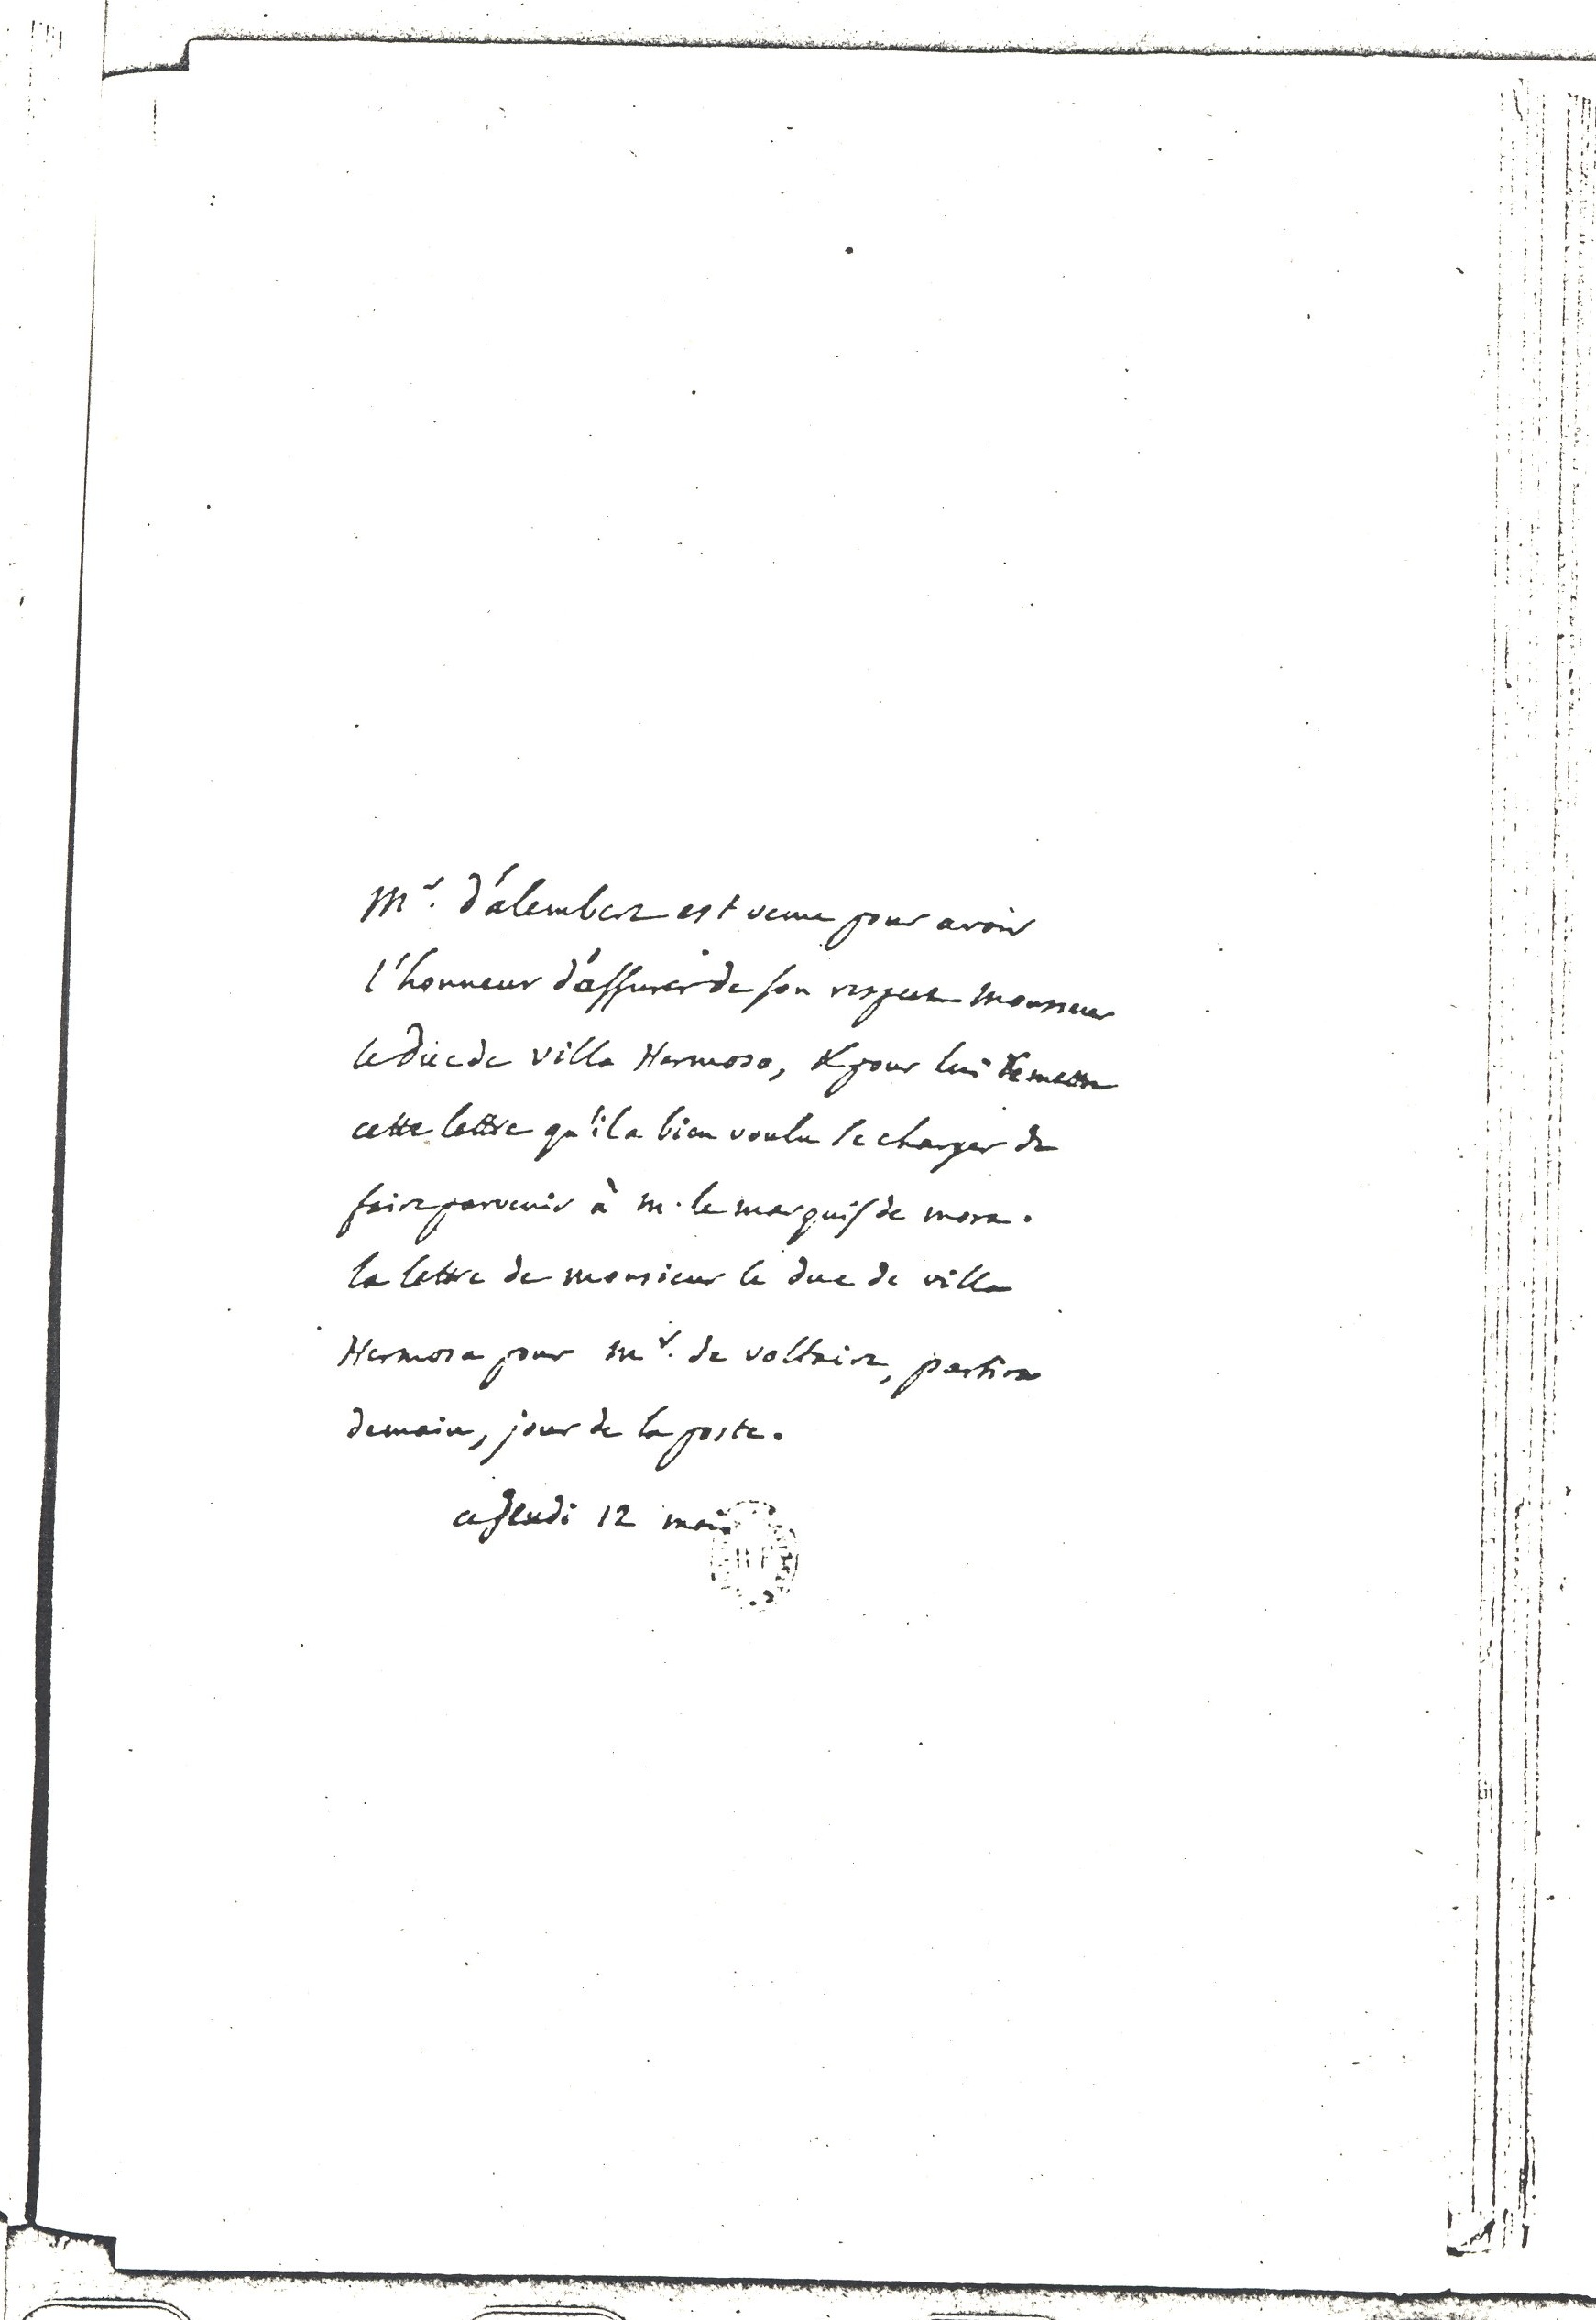 Mr. d'alembert est venu pour avoir
l'honneur d'assurer de son respect monsieur
le Duc de Villa Hermosa, & pour lui remettre
cette lettre qu'il a bien voulu se charger de
faire parvenir à m. le marquis de mora.
la lettre de monsieur le duc de villa
Hermosa pour mr. de voltaire, partira
demain, jour de la poste.
ce Jeudi 12 mai